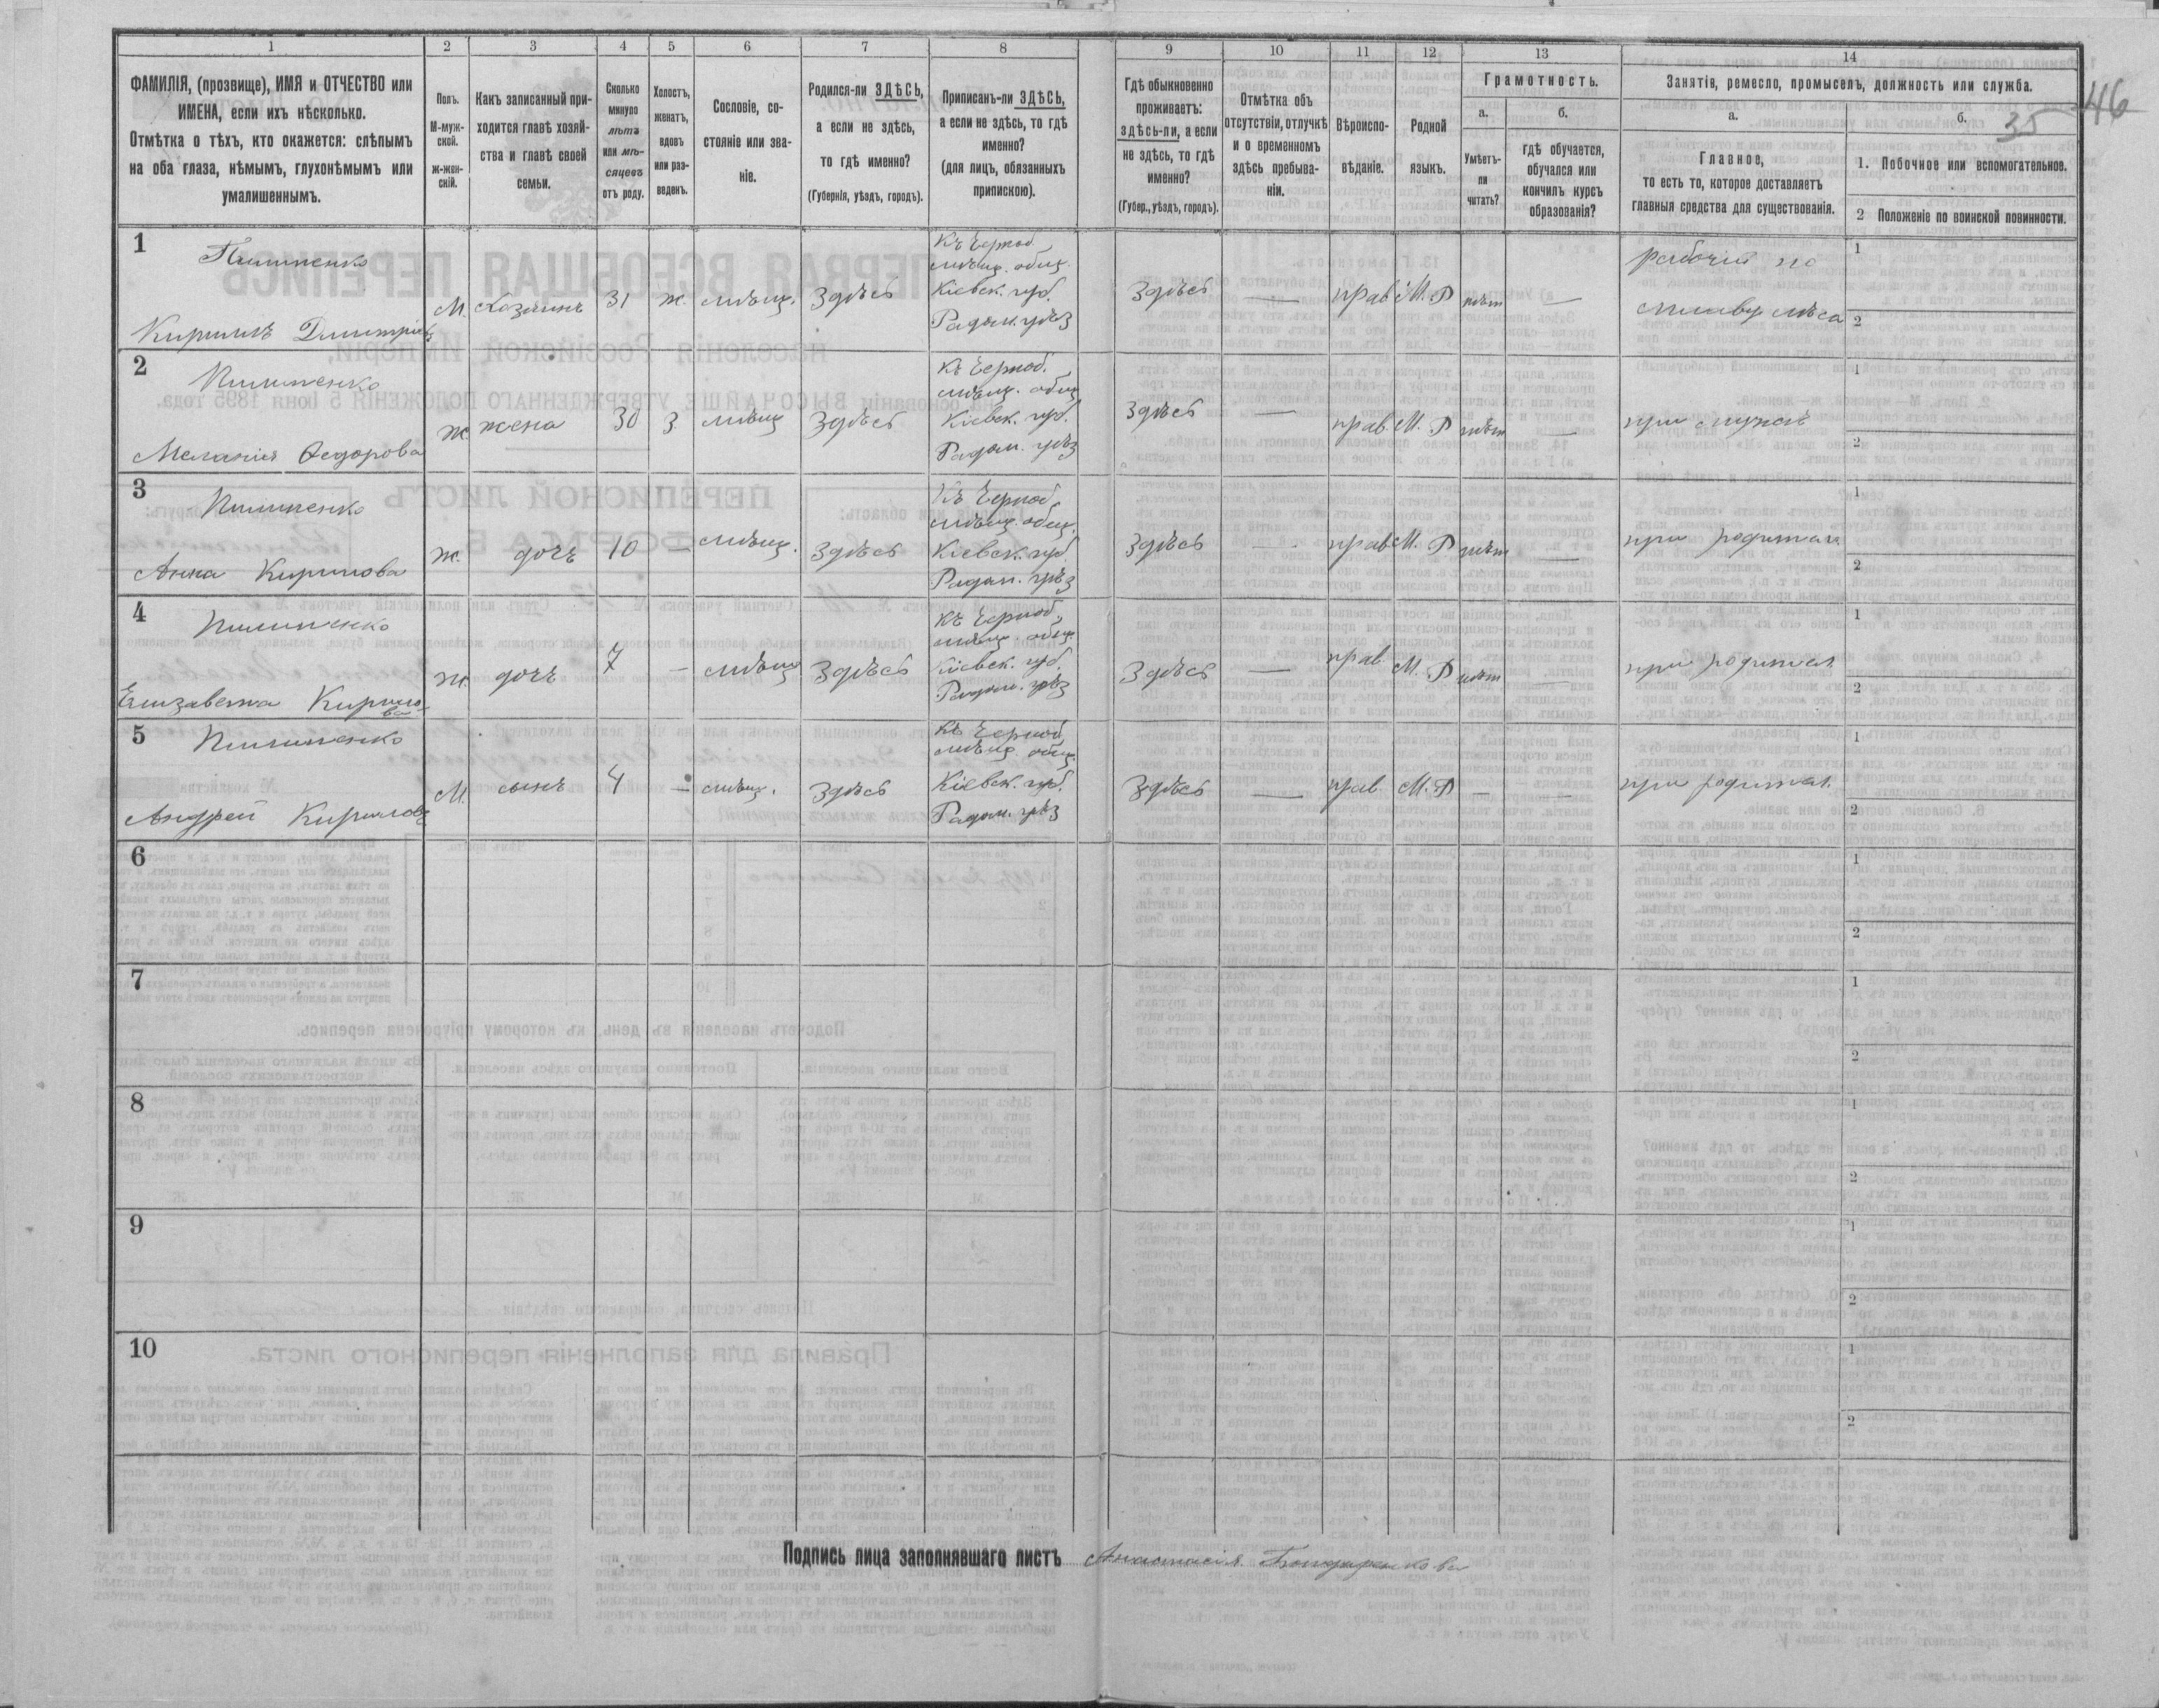 1 2 3 4 5 6 7 8 9 10 11 12 13 14
ФАМИЛІЯ, (прозвище), ИМЯ и ОТЧЕСТВО или
ИМЕНА, если ихъ нѣсколько.
Отмѣтка о тѣхъ, кто окажется: слѣпымъ
на оба глаза, нѣмымъ, глухонѣмымъ или
умалишеннымъ.
Полъ.
М-муж-
ской.
ж-жен-
скій.
Какъ записанный при-
ходится главѣ хозяй-
ства и главѣ своей
семьи.
Сколько
минуло
лѣтъ
или мѣ-
сяцевъ
отъ роду.
Холостъ,
женатъ,
вдовъ
или раз-
веденъ.
Сословіе, со-
стояніе или зва-
ніе.
Родился-ли ЗДѢСЬ,
а если не здѣсь,
то гдѣ именно?
(Губернія, уѣздъ, городъ).
Приписанъ-ли ЗДѢСЬ,
а если не здѣсь, то гдѣ
именно?
(для лицъ, обязанныхъ
припискою).
Гдѣ обыкновенно
проживаетъ:
здѣсь-ли, а если
не здѣсь, то гдѣ
именно?
(Губер., уѣздъ, городъ).
Отмѣтка объ
отсутствіи, отлучкѣ
и о временномъ
здѣсь пребыва-
ніи.
Вѣроиспо-
вѣданіе.
Родной
языкъ.
Грамотность.
а.
Умѣетъ-
ли
читать?
б.
гдѣ обучается,
обучался или
кончилъ курсъ
образованія?
Занятія, ремесло, промыселъ, должность или служба.
а.
Главное,
то есть то, которое доставляетъ
главныя средства для существованія.
б.
35
46
1. Побочное или вспомогательное.
2 Положеніе по воинской повинности.
1
Пилипенко
Кирилъ Дмитріевъ
М. Хозяинъ 31 ж. мѣщ. Здѣсь
Къ Черноб.
мѣщ. общ.
Кіевск. губ.
Радом. уѣз
Здѣсь — прав М. Р нѣт —
рабочій по
сплаву лѣса
1
2
2
Пилипенко
Меланія Ѳедорова
ж жена 30 З мѣщ Здѣсь
Къ Черноб.
мѣщ. общ
Кіевск. губ.
Радом. уѣз
Здѣсь — прав. М. Р нѣт —
при мужѣ
1
2
3
Пилипенко
Анна Кирилова
ж. дочь 10 — мѣщ. Здѣсь
Къ Черноб.
мѣщ. общ.
Кіевск. губ
Радом. уѣз
Здѣсь — прав М. Р нѣт —
при родител
1
2
4
Пилипенко
Елизавета Кирило-
ва
ж. дочь 7 — мѣщ Здѣсь
Къ Черноб
мѣщ. общ.
Кіевск. губ.
Радом. уѣз
Здѣсь — прав М. Р нѣт —
при родител
1
2
5
Пилипенко
Андрей Кириловъ
М. сынъ 4 — мѣщ. Здѣсь
Къ Черноб
мѣщ. общ.
Кіевск. губ.
Радом. уѣз
Здѣсь — прав. М. Р — —
при родител.
1
2
6
1
2
7
1
2
8
1
2
9
1
2
10
1
2
Подпись лица заполнявшаго листъ Анастасія Бондаренкова